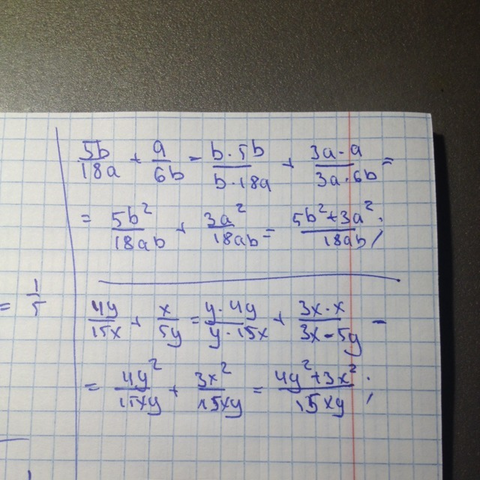 5b/18a + a/6b = b·5b/b·18a + 3a·a/3a·6b =
= 5b²/18ab + 3a²/18ab = 5b²+3a²/18ab;
= 1/5
4y/15x + x/5y = y·4y/y·15x + 3x·x/3x·5y =
= 4y²/15xy + 3x²/15xy = 4y²+3x²/15xy;